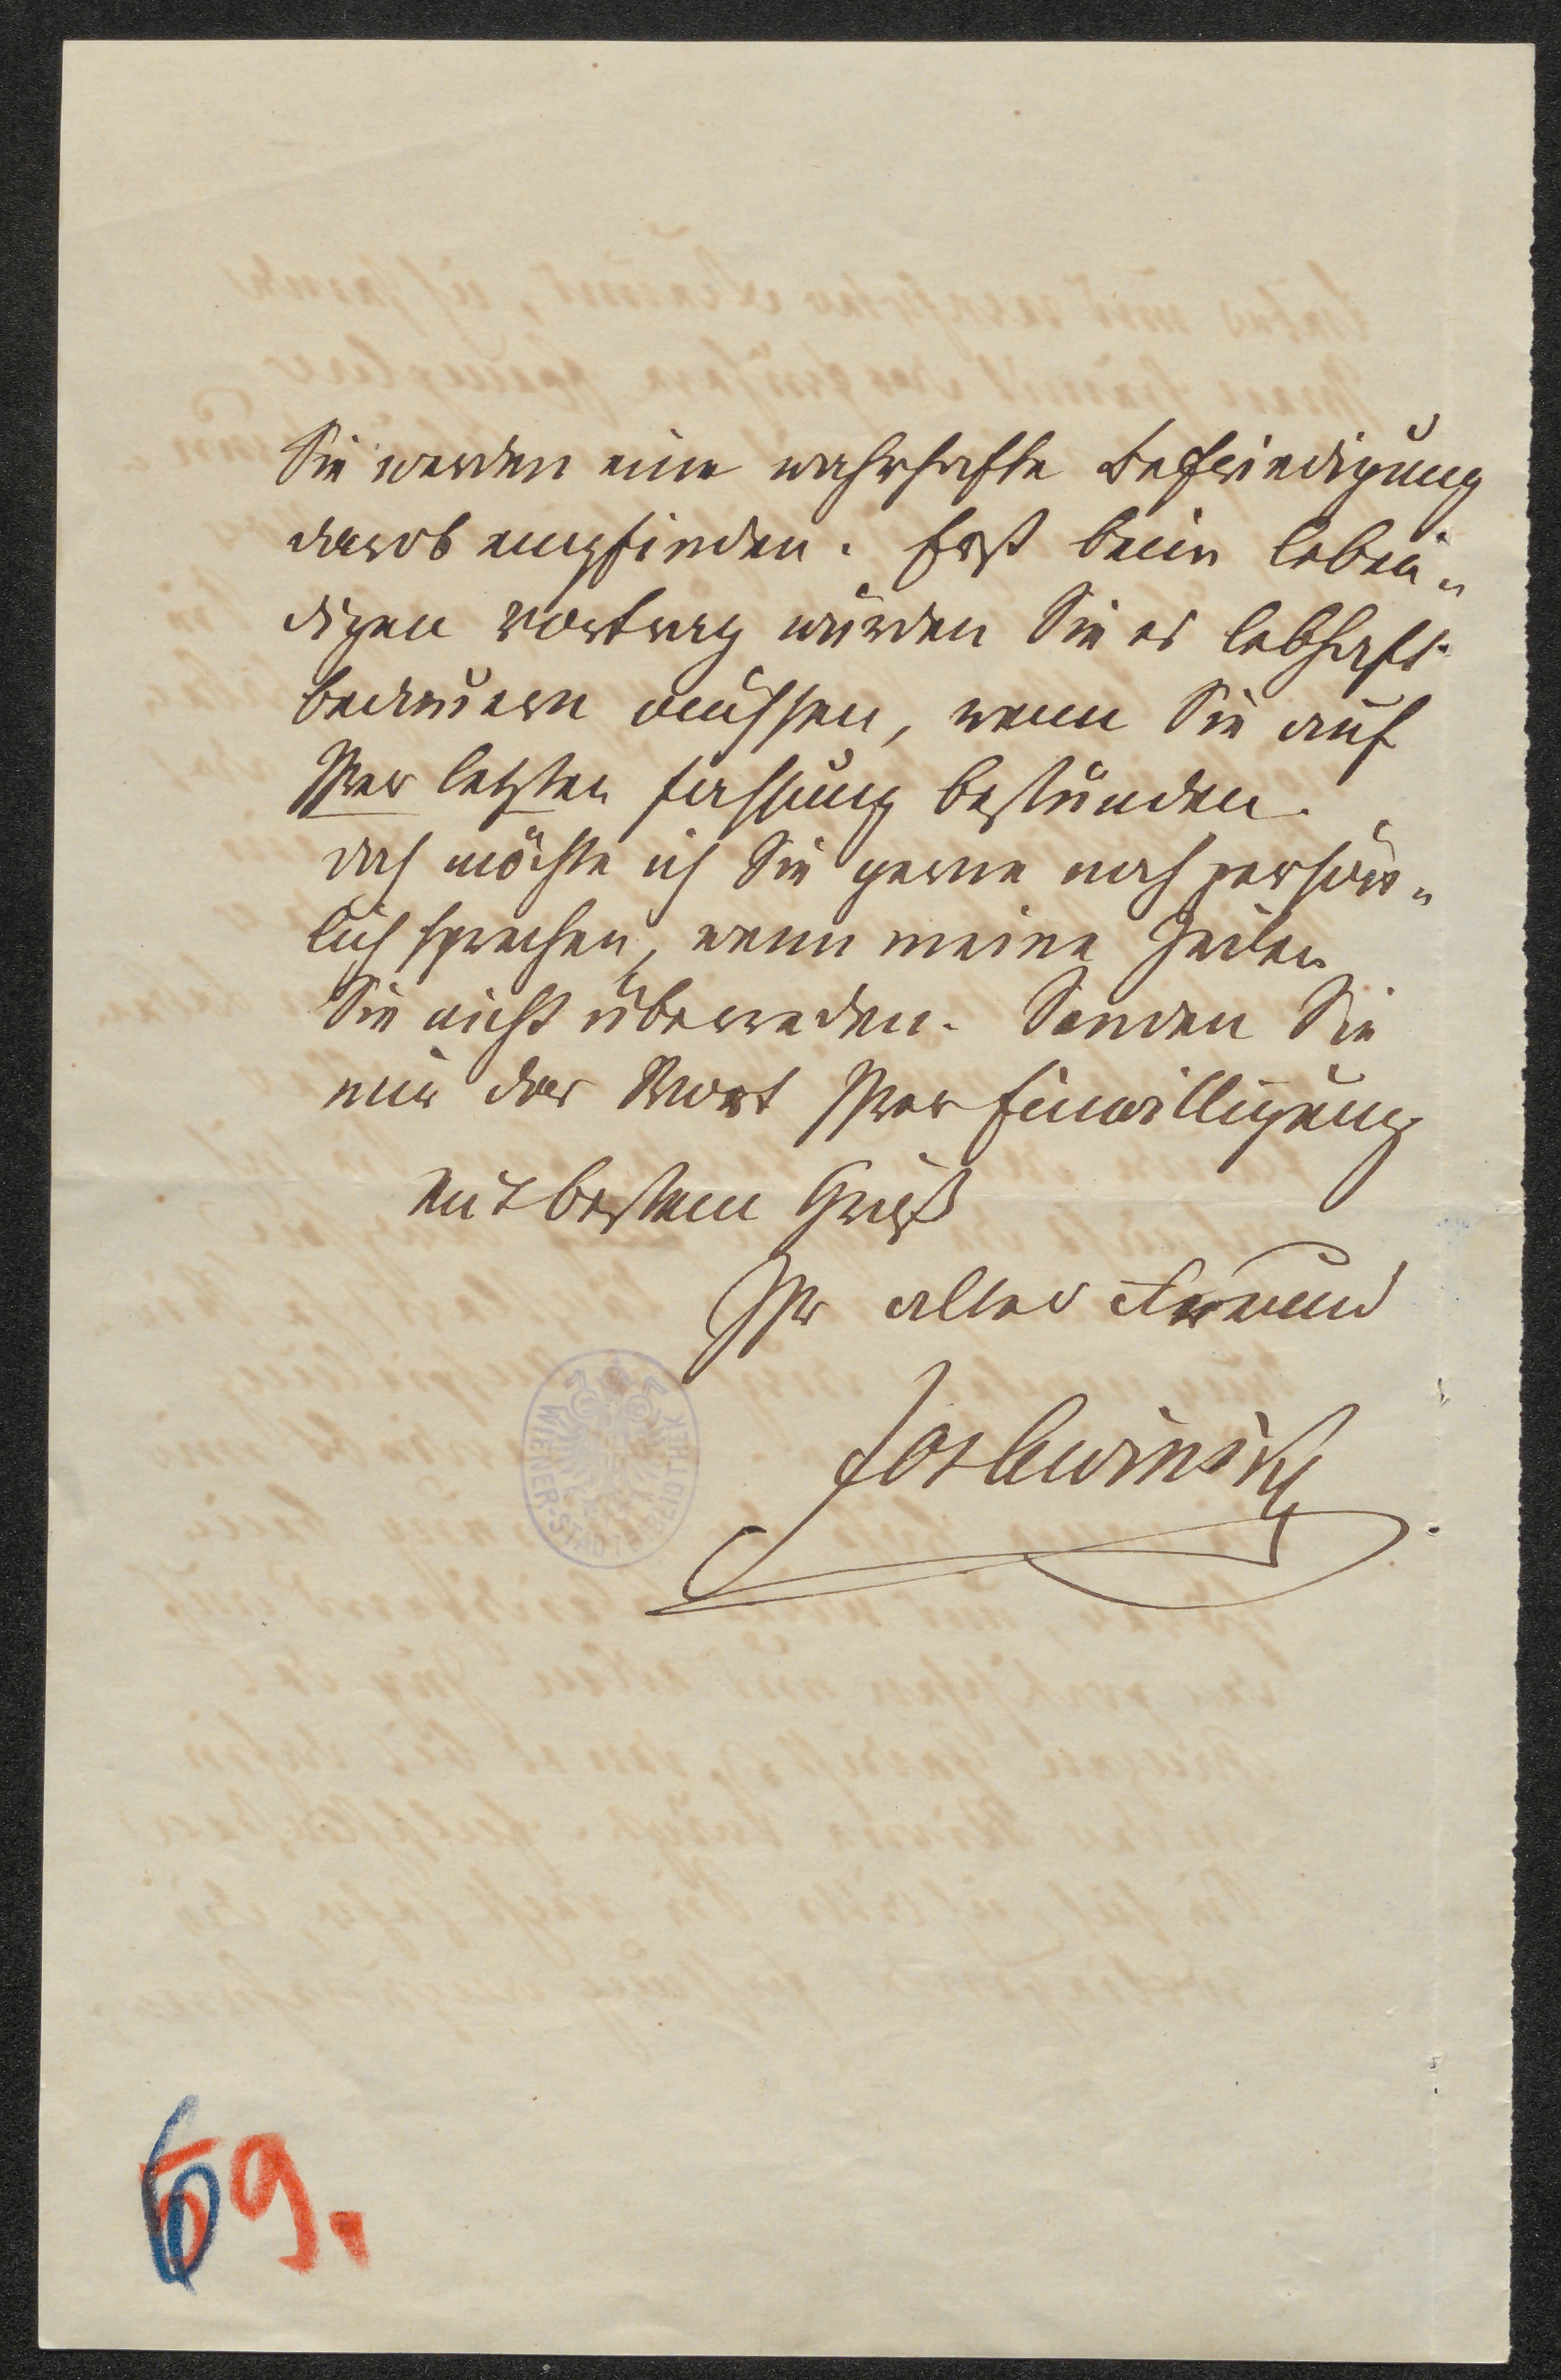 Sie werden eine wahrhafte Befriedigung
darob empfinden. Erst beim leben„
digen Vortrag würden Sie es lebhaft
bedauern müssen, wenn Sie auf
Ihrer letzten Fassung bestünden.
Doch möchte ich Sie gerne noch persön„
lich sprechen, wenn meine Zeilen
Sie nicht überreden. Senden Sie
mir das Wort Ihrer Einwilligung
Mit bestem Gruß
Ihr alter Freund
Jos Lewinsky
WIENER-STADTBIBLIOTHEK
69.